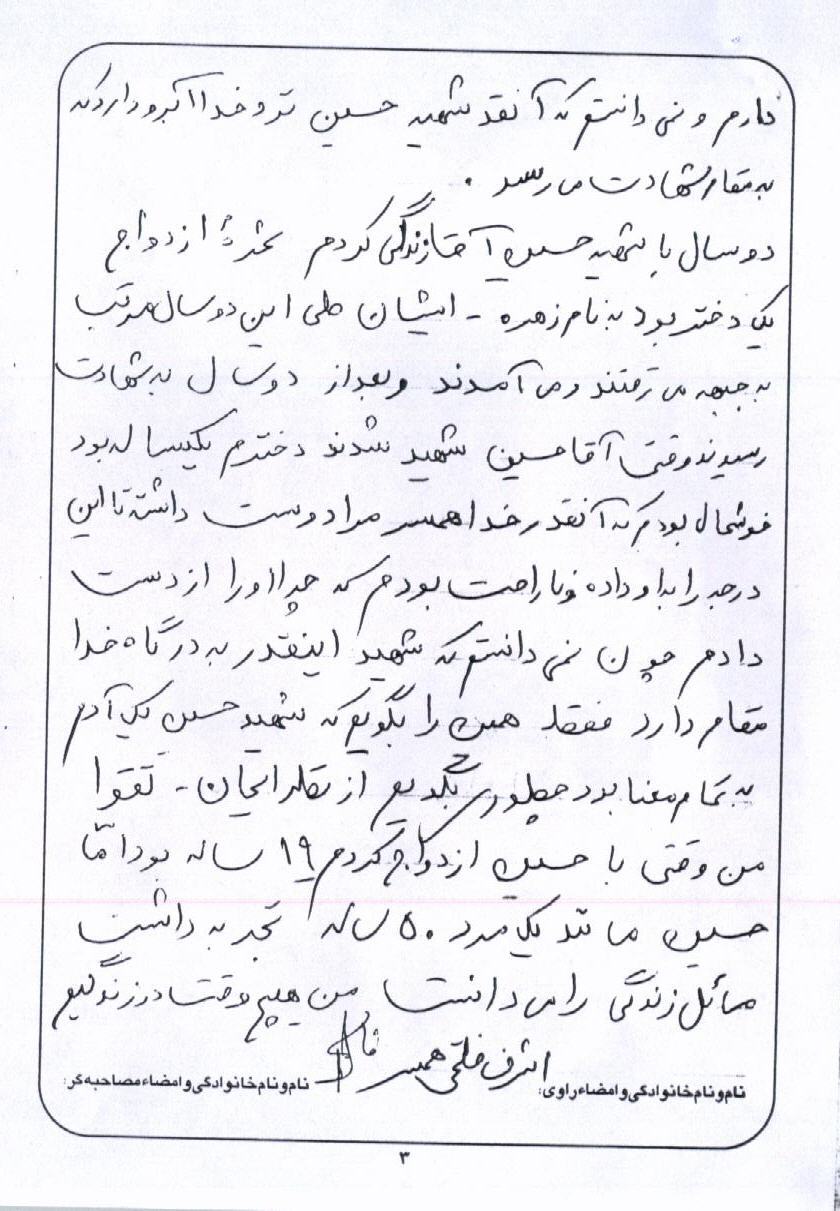 دارم و نمی دانستم که آنقدر شهید حسین نزد خدا آبرو دارد که
به مقام شهادت می رسد .
دو سال با شهید حسین آقا زندگی کردم ثمرهٔ ازدواج
یک دختر بود به نام زهره - ایشان طی این دو سال مرتب
به جبهه می رفتند و می آمدند و بعد از دو سال به شهادت
رسیدند وقتی آقا حسین شهید شدند دخترم یکساله بود
خوشحال بودم که آنقدر خدا همسر مرا دوست داشته تا این
درجه را به او داده و ناراحت بودم که چرا او را از دست
دادم چون نمی دانستم که شهید اینقدر به درگاه خدا
مقام دارد فقط همین را بگویم که شهید حسین یک آدم
به تمام معنا بود چطوری بگویم از نظر ایمان - تقوا
من وقتی با حسین ازدواج کردم ۱۹ ساله بود امّا
حسین مانند یک مرد ۵۰ ساله تجربه داشت
مسائل زندگی را می دانست من هیچ وقت در زندگیم
اشرف همسر
نام و نام خانوادگی و امضاء راوی:
نام و نام خانوادگی و امضاء مصاحبه گر:
۳